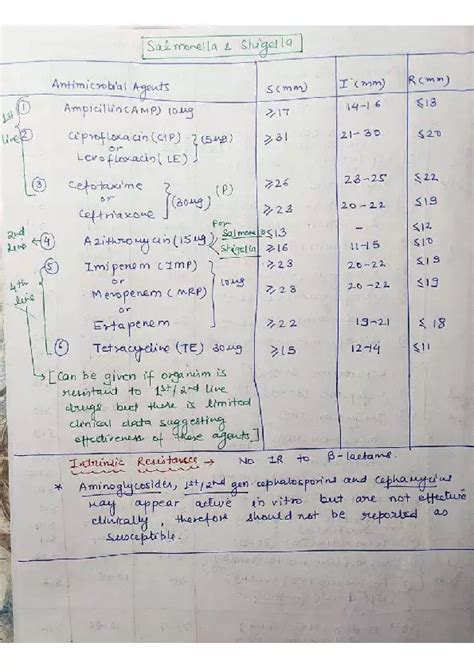 Salmonella & Shigella
Antimicrobial Agents S(mm) I (mm) R(mm)
1st line ① Ampicillin (AMP) 10µg ≥17 14-16 ≤13
② Ciprofloxacin (CIP) (5µg) ≥31 21-30 ≤20
or
Levofloxacin (LE)
③ Cefotaxime (30µg) (P) ≥26 23-25 ≤22
or
Ceftriaxone ≥23 20-22 ≤19
2nd line ④ Azithromycin (15µg) For Salmonella ≤13 - ≤12
Shigella ≥16 11-15 ≤10
4th line ⑤ Imipenem (IMP) 10µg ≥23 20-22 ≤19
or
Meropenem (MRP) ≥23 20-22 ≤19
or
Ertapenem ≥22 19-21 ≤18
⑥ Tetracycline (TE) 30µg ≥15 12-14 ≤11
[Can be given if organism is
resistant to 1st/2nd line
drugs but there is limited
clinical data suggesting
effectiveness of these agents.]
Intrinsic Resistance → No IR to β-lactams.
* Aminoglycosides, 1st/2nd gen cephalosporins and Cephamycins
may appear active in vitro but are not effective
clinically, therefore should not be reported as
susceptible.